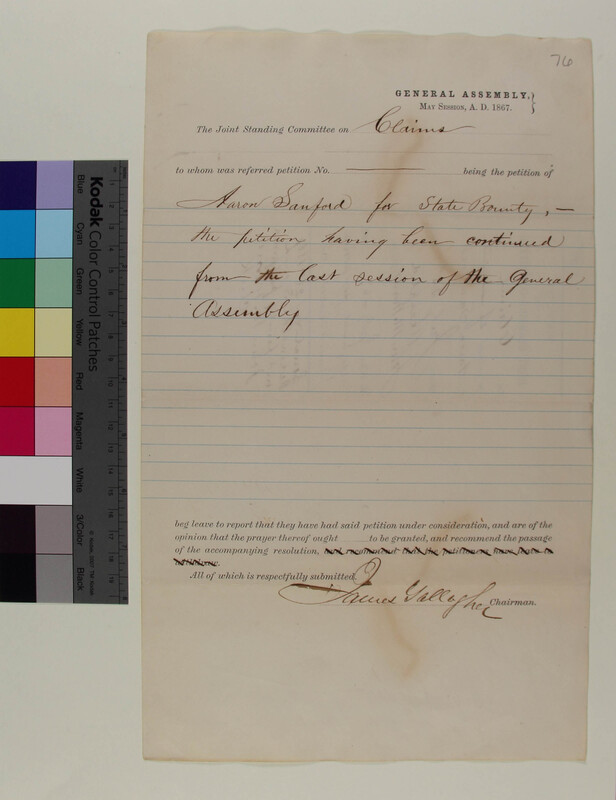 76
GENERAL ASSEMBLY,
MAY SESSION, A. D. 1867.
The Joint Standing Committee on Claims
to whom was referred petition No. ——— being the petition of
Aaron Sanford for State Bounty, —
the petition having been continued
from the last session of the General
Assembly
beg leave to report that they have had said petition under consideration, and are of the
opinion that the prayer thereof ought to be granted, and recommend the passage
of the accompanying resolution, and recommend that the petitioner have leave to
withdraw.
All of which is respectfully submitted,
James Gallagher Chairman.
Kodak Color Control Patches
Blue
Cyan
Green
Yellow
Red
Magenta
White
3/Color
Black